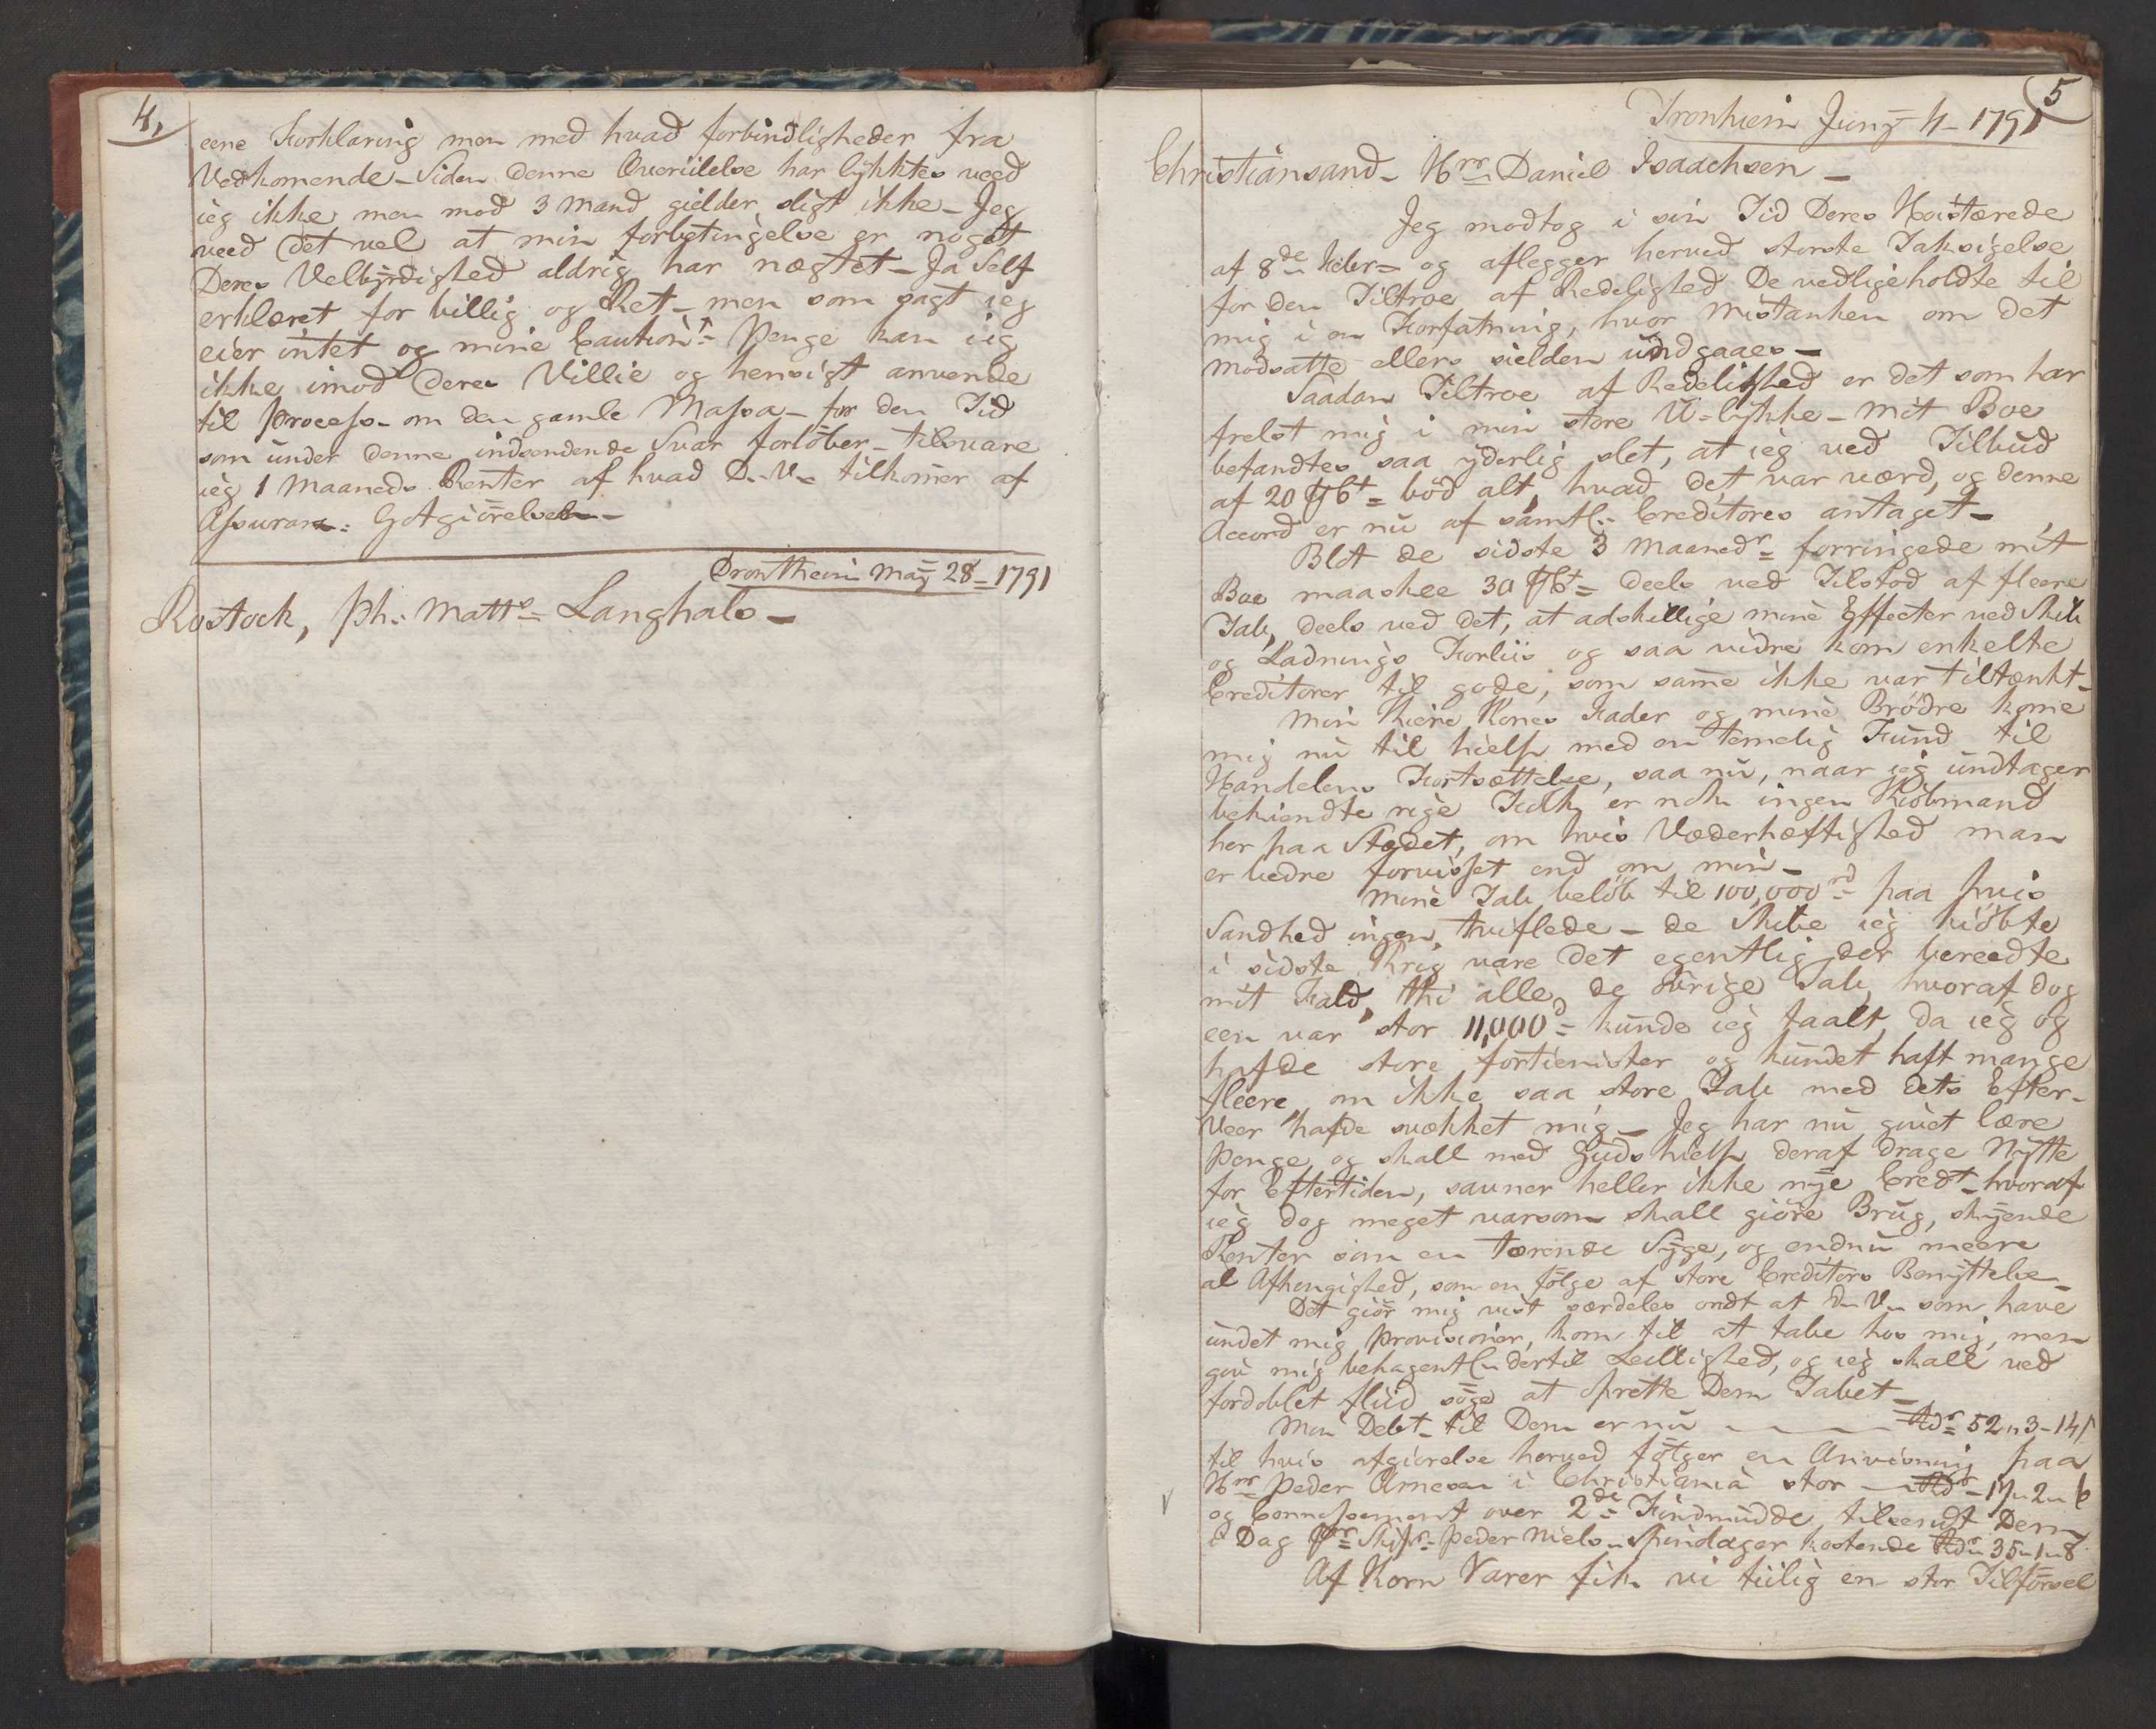 4,
eene Forklaring men med hvad forbindligheder fra
Vedkomende – Siden denne Overiilelse har lykktes veed
ieg ikke men mod 3 mand gielder sligt ikke – Jeg
veed det vel at min forbetingelse er noget
Deres Velbyrdighed aldrig har nægtet – Ja Self
erklæret for billig og Ret – men som sagt ieg
eier intet og mine Cautions Penge kan ieg
ikke imod Deres Villie og hensigt anvende
til Process – om den gamle Massa – for den Tid
som under denne indsendende Svar forløber – tilsvare
ieg 1 Maaneds Renter af hvad D. V. tilkomer af
Assuranc: Gotgiørelsen –
Drontheim May 28 – 1791
Rostock, Ph: Matts = Langhals –
5
Tronhiem Juny 4 – 1791
Christiansand – Hrr = Daniel Isaachsen –
Jeg modtog i sin Tid Deres Høistærede
af 8de Febr = og aflegger herved største Taksigelse
for den Tiltroe af Redelighed De vedligeholdte til
mig i en Forfatning, hvor mistanken om det
modsatte ellers sielden undgaaes –
Saadan Tiltroe af Redelighed er det som har
frelst mig i min store U-lykke – mit Boe
befandtes saa yderlig slet, at ieg ved Tilbud
af 20 pCt = bød alt, hvad det var værd, og denne
Accord er nu af samtl: Creditores antaget –
Blot de sidste 3 Maanedr = forringede mit
Boe maaskee 30 pCt = deels ved Tilstød af fleere
Tab, deels ved det, at adskillige mine Effecter ved Skib
og Ladnings Forliis og saa vidre kom enkelte
Creditorer til gode, som same ikke var tiltænkt –
Min Kiere Kones Fader og mine Brødre kome
mig nu til hielp med en temelig Fund til
Handelens Fortsættelse, saa nu, naar ieg undtager
bekiendte rige Folk, er nok ingen Kiøbmand
her paa Stædet, om hvis Væderhæftighed man
er bedre forvisset end om min –
Mine Tab beløb til 100,000 rd = paa hvis
Sandhed ingen tviflede – de Skibe ieg kiøbte
i sidste Krig vare det egentlig der bereedte
mit Fald, thi alle de øvrige Tab, hvoraf dog
een var stor 11,000 d = kunde ieg taalt, da ieg og
hafde store fortienister og kundet haft mange
fleere, om ikke saa store Tab med dets Efter-
Veer hafde svækket mig – Jeg har nu givet lære
Penge og skall med Guds hielp deraf drage Nytte
for Eftertiden, savner heller ikke nye Credt – hvoraf
ieg dog meget varsom skall giøre Brug, skyende
Renter som en tærende Syge, og endnu meere
al Afhengighed, som en følge af store Creditors Benyttelse –
Det giør mig vist særdeles ondt at D. V. som have
undet mig Provisioner, kom til at tabe hos mig, men
giv mig behagentl. dertil Leilighed, og ieg skall ved
fordoblet fliid søge at oprette Dem Tabet –
Min Debt – til Dem er nu – – – – Rdr = 52 „ 3 – 14 s
til hvis afgiørelse herved følger en Anviisning paa
Hrr = Peder Arnesen i Christiania stor – Rdr – 17 „ 2 „ 6
og Connossement over 2de = Findmudde, tilsendt Dem
i Dag pr = Skipr = Peder Niels. Spindager kostende Rdr 35 „ 1 „ 8
Af Korn Varer fik vi tiilig en stor Tilførsel